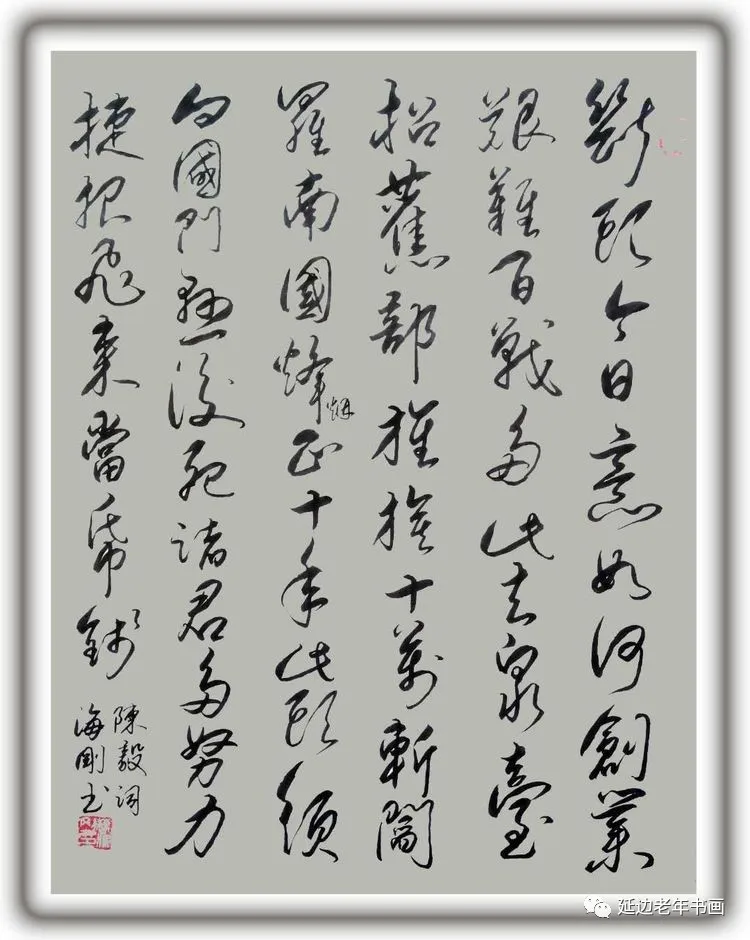 斷頭今日意如何創業
艱難百戰多此去泉臺
招舊部旌旗十萬斬閻
羅南國烽烟正十年此頭須
向國門懸後死諸君多努力
捷報飛來當帋錢
陳毅詞
海剛书
延边老年书画